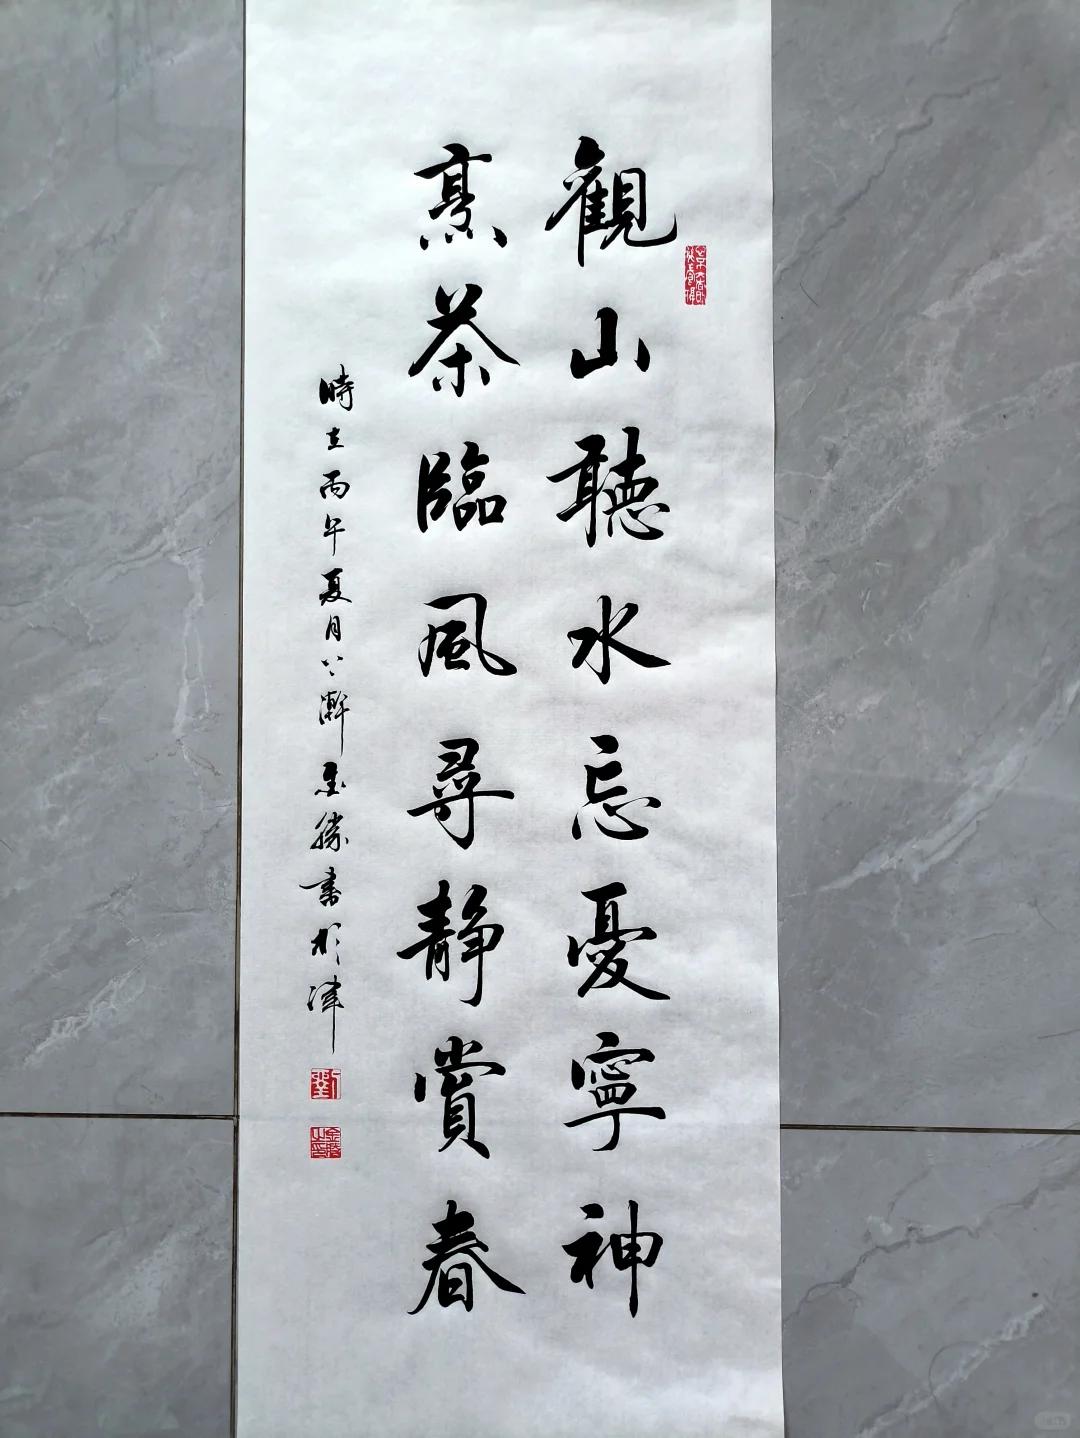 觀山聽水忘憂寧神
烹茶臨風尋靜賞春
時在丙午夏月書於津